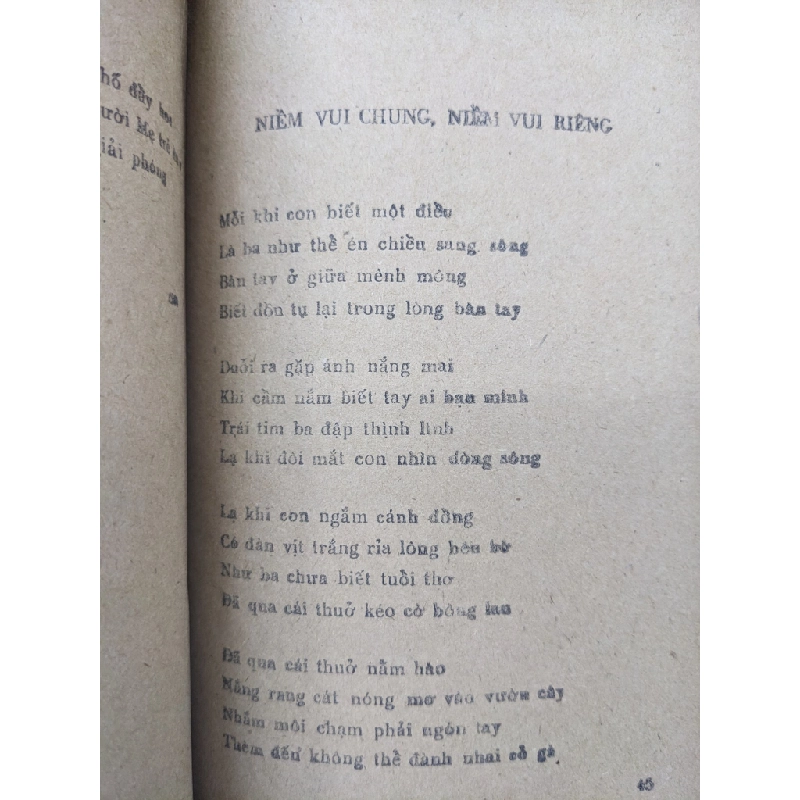 hố đầy
ười Mẹ
iải phóng
NIỀM VUI CHUNG, NIỀM VUI RIÊNG
Mỗi khi con biết một điều
Là ba như thể én chiều sang sông
Bàn tay ở giữa mênh mông
Biết dồn tụ lại trong lòng bàn tay
Duỗi ra gặp ánh nắng mai
Khi cầm nắm biết tay ai bạn mình
Trái tim ba đập thình lình
Lạ khi đôi mắt con nhìn dòng sông
Lạ khi con ngắm cánh đồng
Có đàn vịt trắng rỉa lông bên bờ
Như ba chưa biết tuổi thơ
Đã qua cái thuở kéo cờ bông lau
Đã qua cái thuở nằm hào
Nắng rang cát nóng mơ vào vườn cây
Nhấm môi chạm phải ngón tay
Thèm đến không thể đành nhai cỏ gà
45